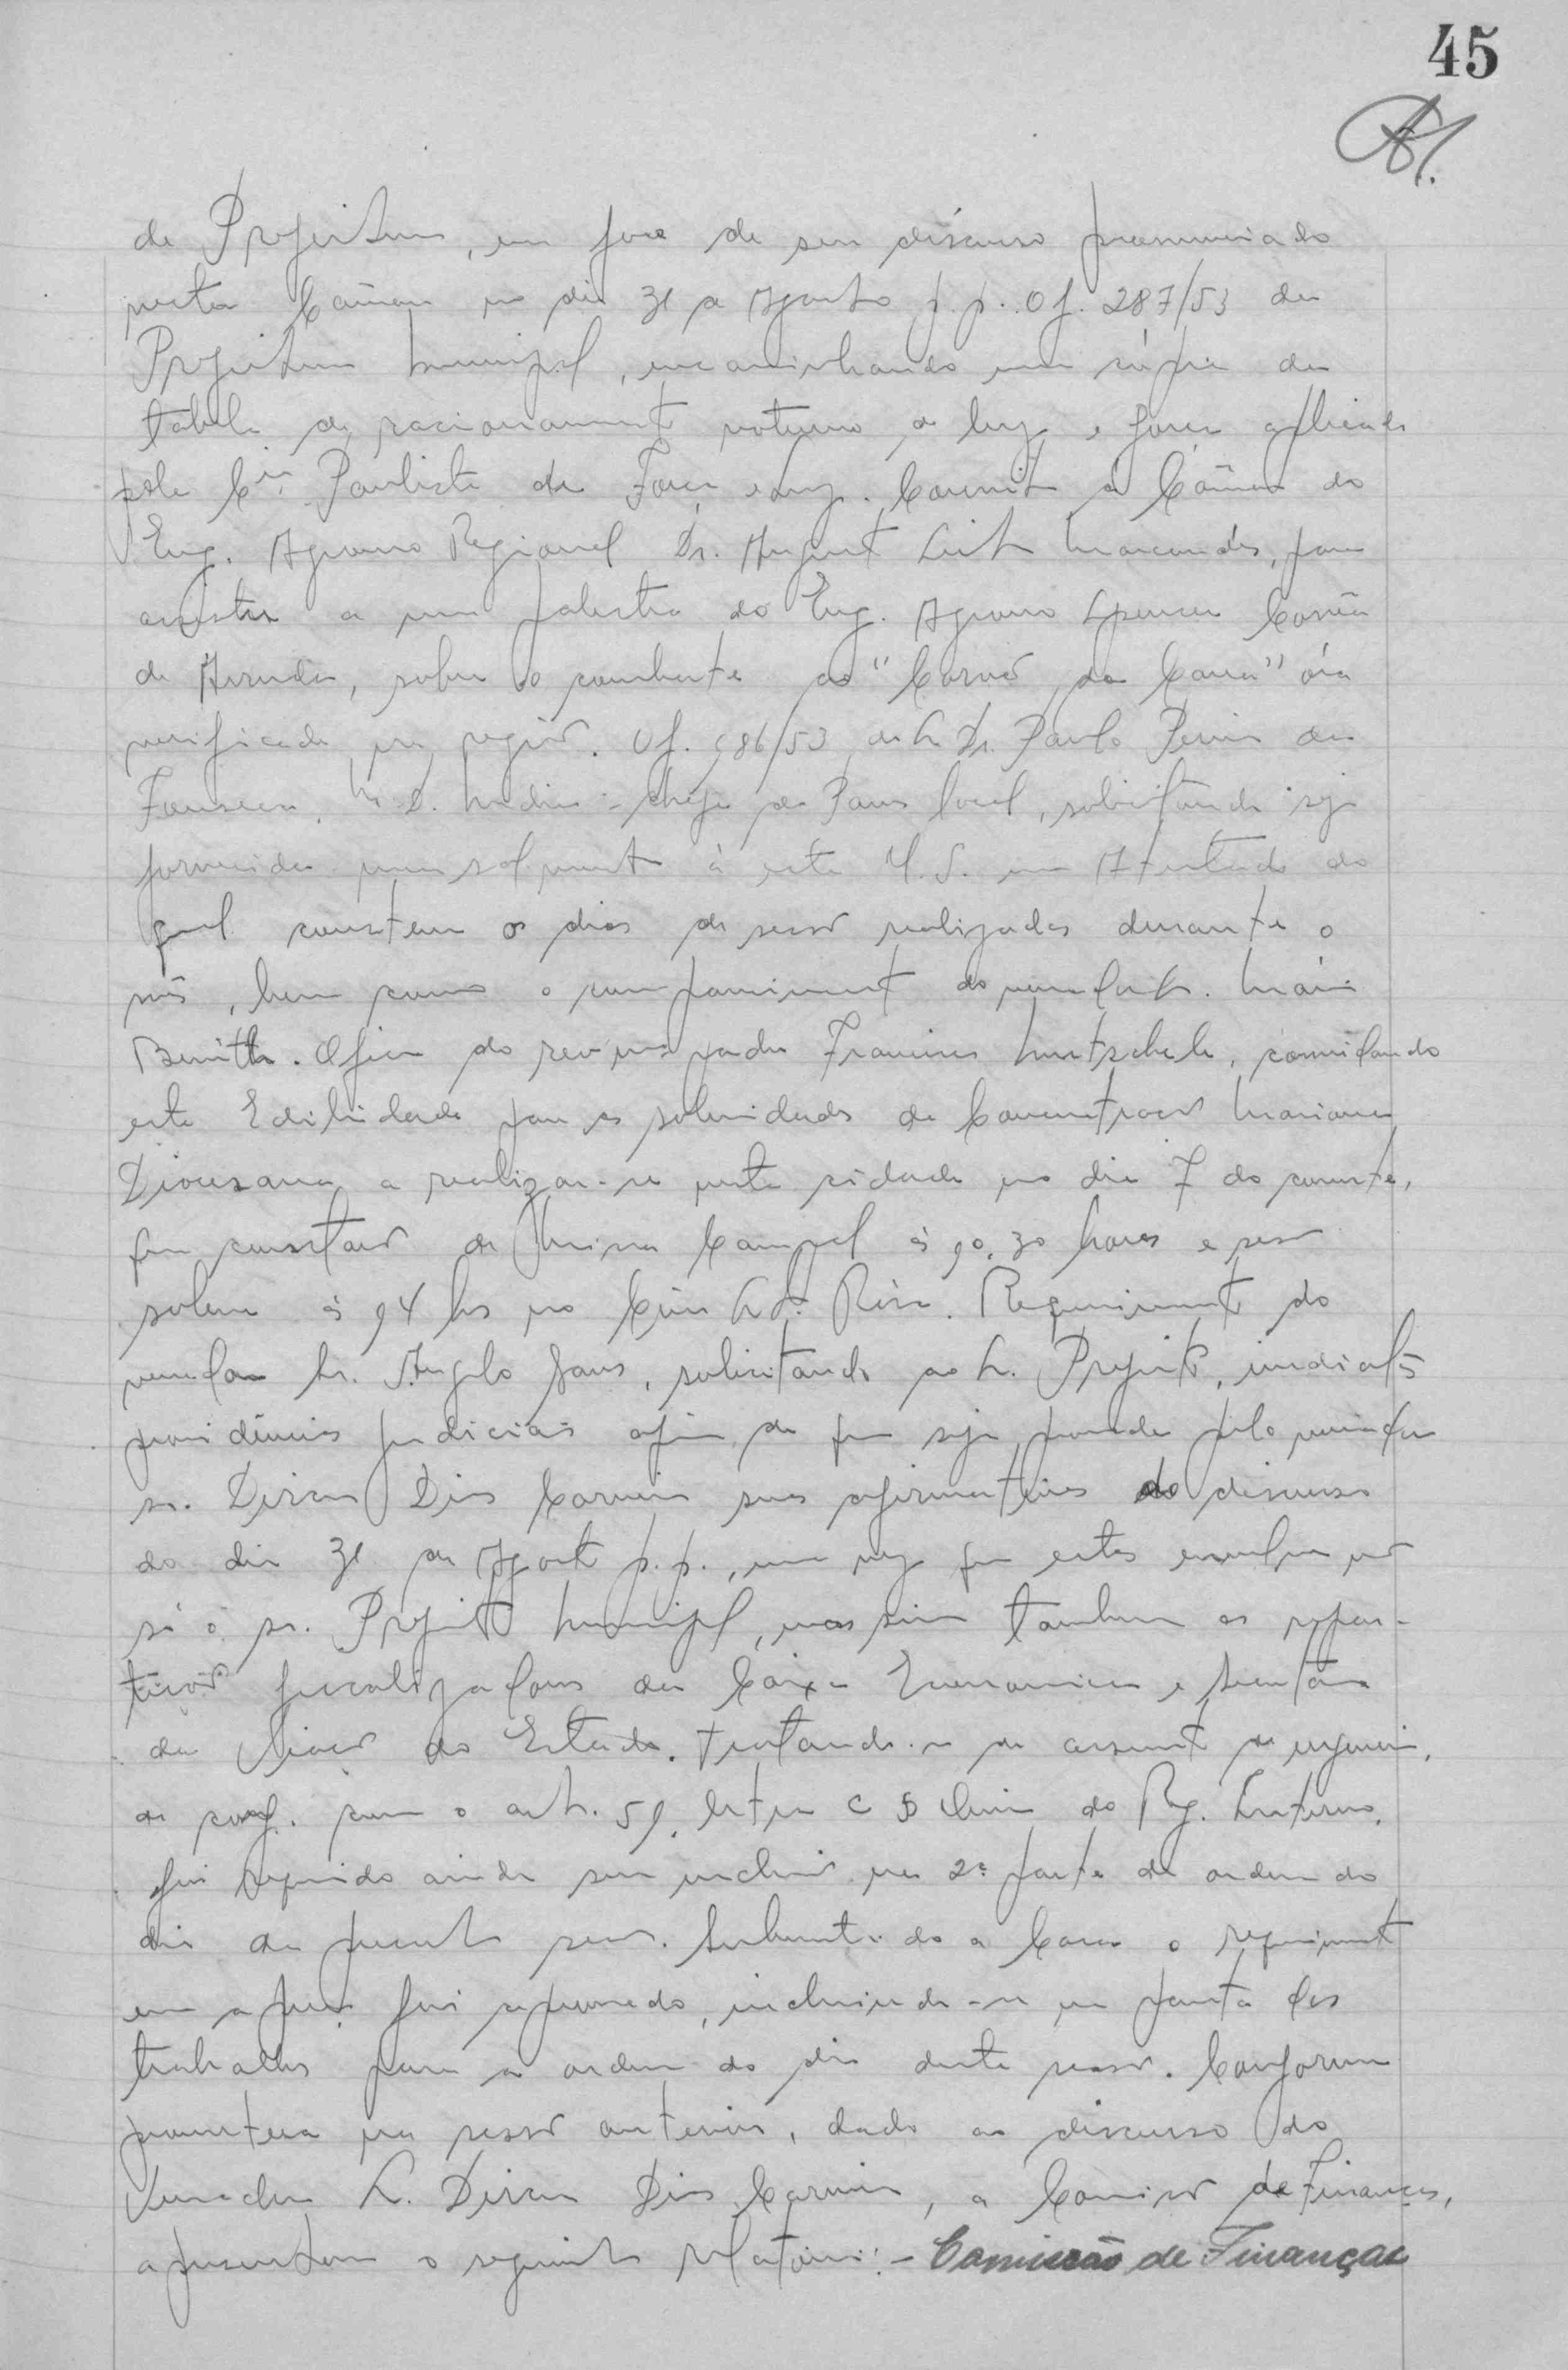 45
de Prefeitura, em face de seu discurso pronunciado
nesta Câmara no dia 31 de Agosto p.p. Of. 287/53 da
Prefeitura Municipal, encaminhando uma cópia da
tabela de racionamento noturno de luz e força aplicada
pela Cia. Paulista de Força e Luz. Convite à Câmara do
Eng. Agronomo Regional Dr. Augusto Leite Marcondes, para
assistir a uma palestra do Eng. Agronomo Spencer Corrêa
de Arruda, sobre o combate ao "Carvão da Cana" óra
verificada na região. Of. 186/53 do Sr. Dr. Paulo Perin da
Fonseca, M.D. Médico-chefe do Pams local, solicitando seja
fornecida mensalmente à esta U.S. um Atestado do
qual constem os dias de sessão realizadas durante o
mês, bem como o comparecimento do vereador Sr. Mário
Benitto. Oficio do revmo padre Francisco, convidando
esta Edilidade para as solenidades da Concentração Mariana
Diocesana a realizar-se nesta cidade no dia 7 do corrente,
que constará de Missa Campal às 10,30 horas e sessão
solene às 14 hs no Cine Sta. Rosa. Requerimento do
vereador Sr. Angelo, solicitando ao Sr. Prefeito, imediatas
providências judiciais afim de que seja provado pelo vereador
sr. Dirceu Dias Carneiro suas afirmativas do discurso
do dia 31 de Agosto p.p., uma vez que estas envolvem não
só o sr. Prefeito Municipal, mas sim tambem as repar-
tições fiscalizadoras da Caixa Economica e Secretaria
da Viação do Estado. Tratando-se de assunto de urgencia,
de conf. com o art. 51, letra c do Reg. Interno,
foi requerido ainda sua inclusão na 2ª parte da ordem do
dia da presente sessão. Submetido a Casa o requerimento
em apreço foi aprovado, incluindo-se na pauta dos
trabalhos para a ordem do dia desta sessão. Conforme
prometera na sessão anterior, dado ao discurso do
Vereador Sr. Dirceu Dias Carneiro, a Comissão de Finanças,
apresentou o seguinte relatório:- Comissão de Finanças